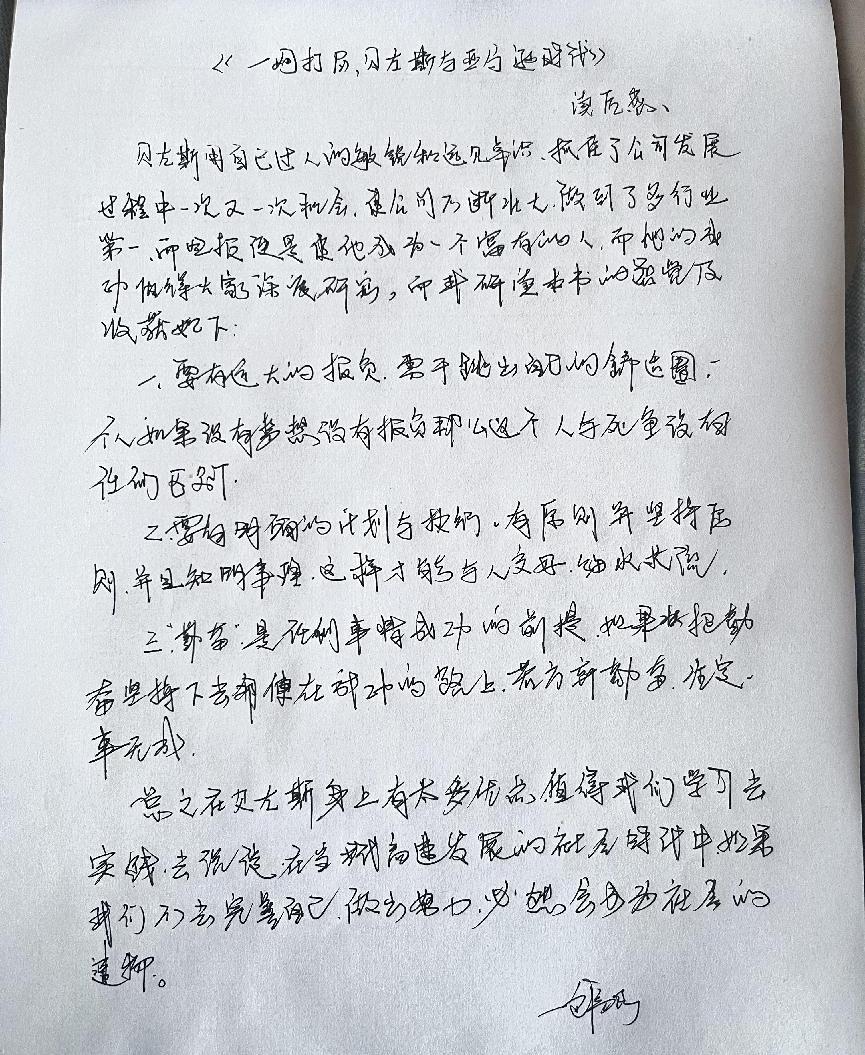 《一网打尽,贝左斯与亚马逊时代》
读后感、
贝左斯用自己过人的敏锐和远见卓识、抓住了公司发展
过程中一次又一次机会,使公司不断壮大,做到了多行业
第一,而 是使他成为一个富有的人,而他的成
功值得大家深度研究,而我研读本书的 及
收获如下:
一、要有远大的报负,要干跳出自己的舒适圈,一
个人如果没有梦想没有报负那么这个人与死鱼没有
任何区别.
二、要有明确的计划与 。有原则并坚持原
则,并且知明事理,这样才能与人交好,细水长流,
三"勤奋"是任何事情成功的前提,如果 把勤
奋坚持下去那便在成功的路上,若不 勤奋,注定一
事无成.
总之在贝左斯身上有太多优点值得我们学习去
实践.去 ,在当代高速发展的社会时代中如果
我们不去完善自己,做出努力,必 会成为社会的
遗 。